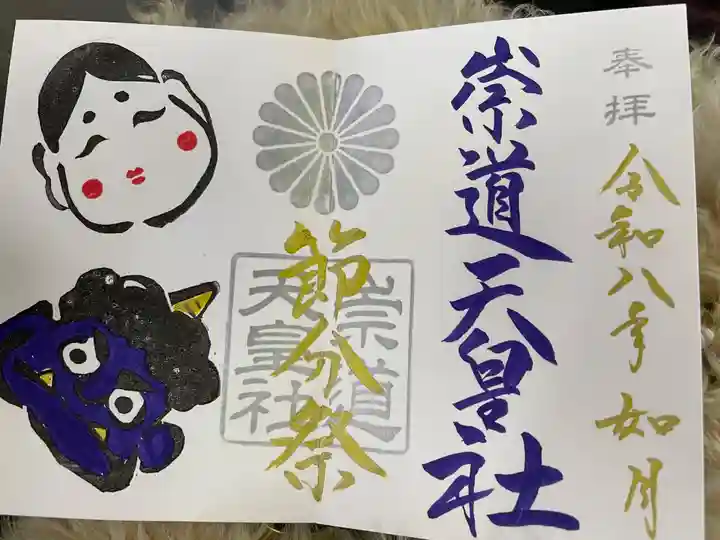 奉拝
令和八年 如月
崇道天皇社
節分祭
崇道
天皇社